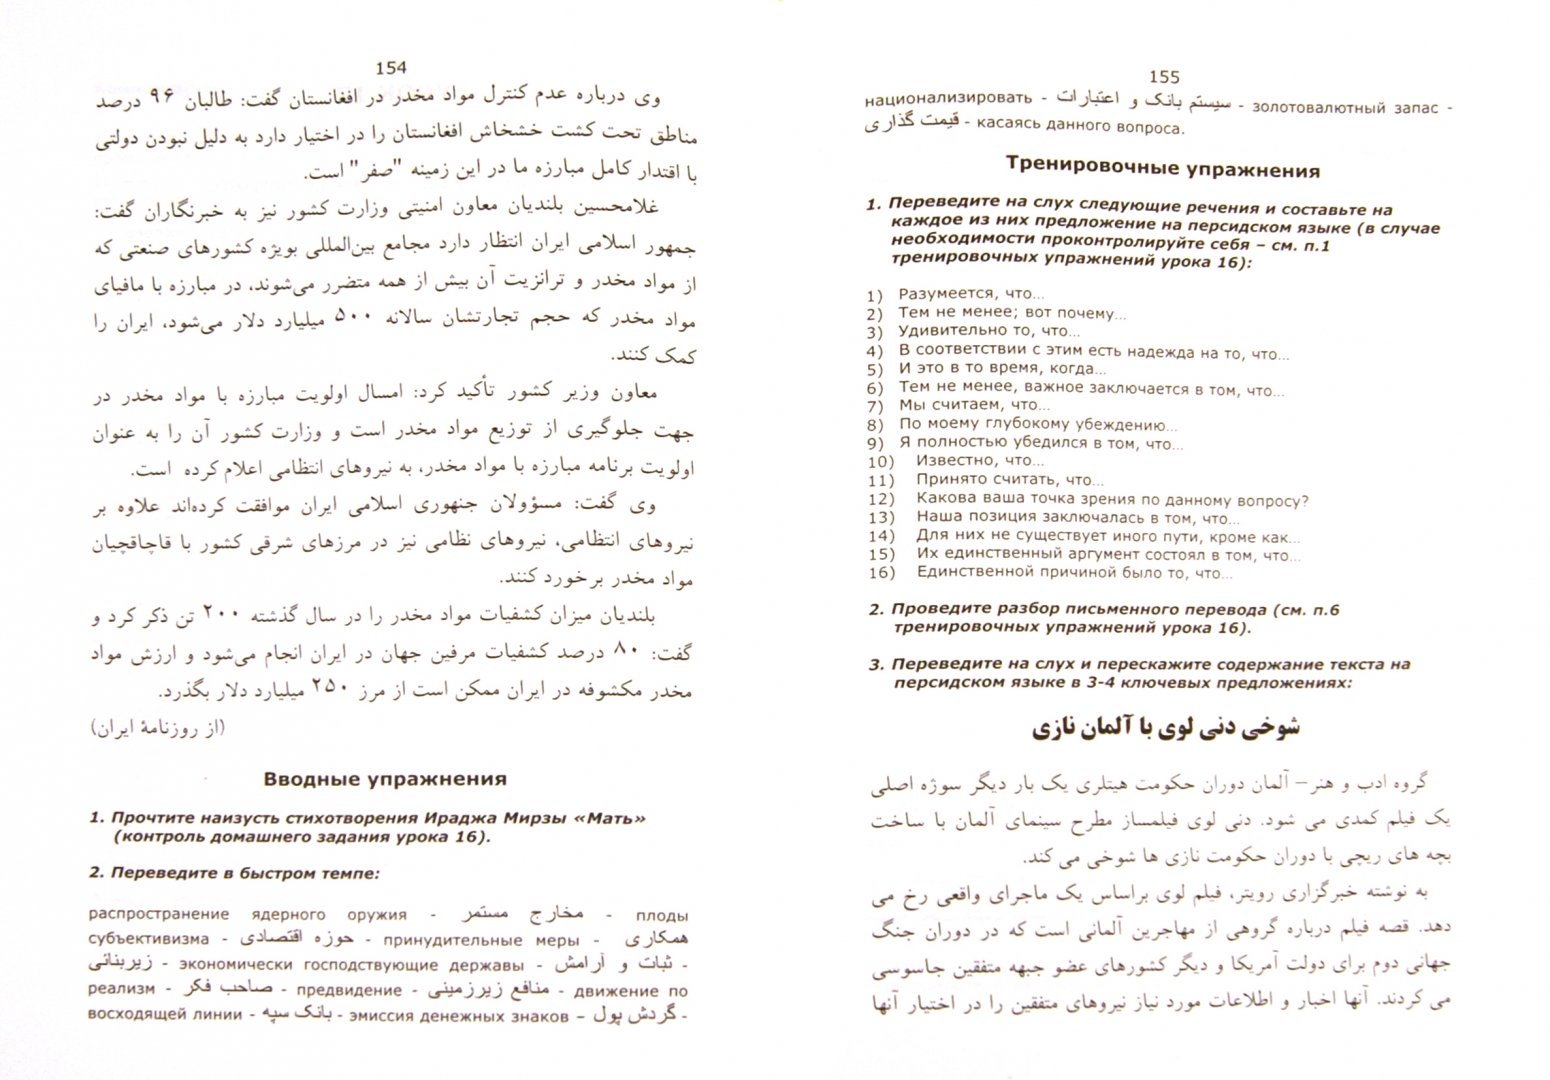 154
وی درباره عدم کنترل مواد مخدر در افغانستان گفت: طالبان ۹۶ درصد
مناطق تحت کشت خشخاش افغانستان را در اختیار دارد به دلیل نبودن دولتی
با اقتدار کامل مبارزه ما در این زمینه "صفر" است.
غلامحسین بلندیان معاون امنیتی وزارت کشور نیز به خبرنگاران گفت:
جمهور اسلامی ایران انتظار دارد مجامع بین‌المللی بویژه کشورهای صنعتی که
از مواد مخدر و ترانزیت آن بیش از همه متضرر می‌شوند، در مبارزه با مافیای
مواد مخدر که حجم تجارتشان سالانه ۵۰۰ میلیارد دلار می‌شود، ایران را
کمک کنند.
معاون وزیر کشور تأکید کرد: امسال اولویت مبارزه با مواد مخدر در
جهت جلوگیری از توزیع مواد مخدر است و وزارت کشور آن را به عنوان
اولویت برنامه مبارزه با مواد مخدر، به نیروهای انتظامی اعلام کرده است.
وی گفت: مسؤولان جنهوری اسلامی ایران موافقت کرده‌اند علاوه بر
نیروهای انتظامی، نیروهای نظامی نیز در مرزهای شرقی کشور با قاچاقچیان
مواد مخدر برخورد کنند.
بلندیان میزان کشفیات مواد مخدر را در سال گذشته ۲۰۰ تن ذکر کرد و
گفت: ۸۰ درصد کشفیات مرفین جهان در ایران انجام می‌شود و ارزش مواد
مخدر مکشوفه در ایران ممکن است از مرز ۲۵۰ میلیارد دلار بگذرد.
(از روزنامهٔ ایران)
Вводные упражнения
1. Прочтите наизусть стихотворения Ираджа Мирзы «Мать»
(контроль домашнего задания урока 16).
2. Переведите в быстром темпе:
распространение ядерного оружия - مخارج مستمر - плоды
субъективизма - حوزه اقتصادی - принудительные меры - همکاری
- ثبات و آرامش - экономически господствующие державы - زیربنائی
реализм - صاحب فکر - предвидение - منافع زیرزمینی - движение по
восходящей линии - بانک سپه - эмиссия денежных знаков – گردش پول -
155
национализировать - سیستم بانک و اعتبارات - золотовалютный запас -
قیمت گذاری - касаясь данного вопроса.
Тренировочные упражнения
1. Переведите на слух следующие речения и составьте на
каждое из них предложение на персидском языке (в случае
необходимости проконтролируйте себя – см. п.1
тренировочных упражнений урока 16):
1) Разумеется, что...
2) Тем не менее; вот почему...
3) Удивительно то, что...
4) В соответствии с этим есть надежда на то, что...
5) И это в то время, когда...
6) Тем не менее, важное заключается в том, что...
7) Мы считаем, что...
8) По моему глубокому убеждению...
9) Я полностью убедился в том, что...
10) Известно, что...
11) Принято считать, что...
12) Какова ваша точка зрения по данному вопросу?
13) Наша позиция заключалась в том, что...
14) Для них не существует иного пути, кроме как...
15) Их единственный аргумент состоял в том, что...
16) Единственной причиной было то, что...
2. Проведите разбор письменного перевода (см. п.6
тренировочных упражнений урока 16).
3. Переведите на слух и перескажите содержание текста на
персидском языке в 3-4 ключевых предложениях:
شوخی دنی لوی با آلمان نازی
گروه ادب و هنر– آلمان دوران حکومت هیتلری یک بار دیگر سوژه اصلی
یک فیلم کمدی می شود. دنی لوی فیلمساز مطرح سینمای آلمان با ساخت
بچه های ریچی با دوران حکومت نازی ها شوخی می کند.
به نوشته خبرگزاری رویتر، فیلم لوی براساس یک ماجرای واقعی رخ می
دهد. قصه فیلم درباره گروهی از مهاجرین آلمانی است که در دوران جنگ
جهانی دوم برای دولت آمریکا و دیگر کشورهای عضو جبهه متفقین جاسوسی
می کردند. آنها اخبار و اطلاعات مورد نیاز نیروهای متفقین را در اختیار آنها